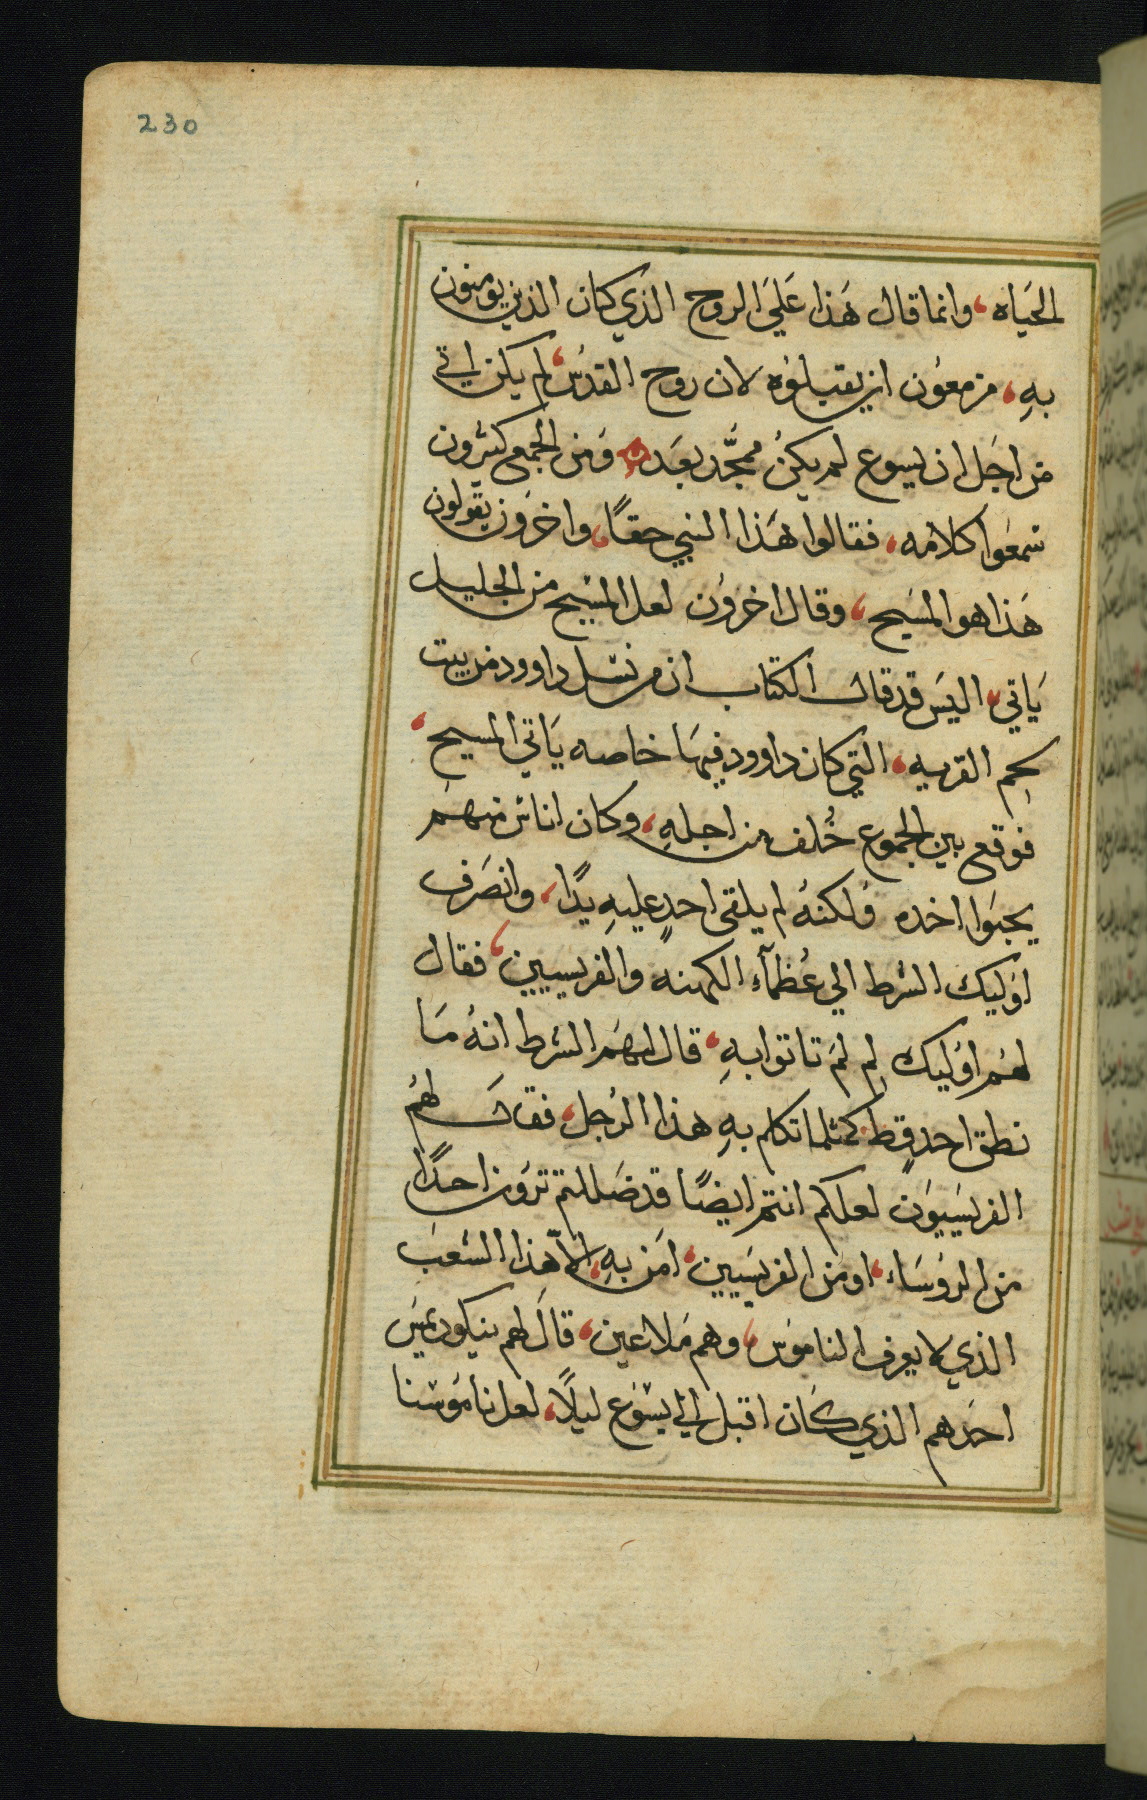 230
الحَياه، وانما قال هَذا عَليَ الروح الذي كان الذين يومنون
بهِ، مزمعوُن ان يقبلوُه لان روح القدُس، لم يكن اتي
من اجَل ان يسوع لم يكنُ ممجَّد بعَد ۞ وَمن الجمع كثيرون
سَمعَوا كلامه، فقالوا هَذا النبي حقاً، واخرَون يقولون
هَذا هو المسَيح، وقال اخروُن لعل المسَيح من الجليل
يَاتي، اليسَ قد قال الكتاب ان من نسَل داوود من بيت
لحِم القريه، التي كان داوود فيهَا خاصه يَاتي المسيح،
فوقع بين الجموع خُلف من اجلهِ، وكان اناسَ منهم
يحبَوا اخده وَلكنهُ لم يلقى احدٍ عليهِ يدًا، وانصَرف
اوَليك الشرط الي عُظمآءِ الكهنه والفريسيين، فقال
لهُم اوَليك لِم لمَ تاتوا بهِ، قال لهَم الشرط انهُ مَا
نطق احدٍ قط كمثلما تكلم بهِ هذا الرُجل، فقال لهُم
الفريسَيوَن لعلكم انتم ايضًا قد ضَللتم ترَون احدًا
من الروَسَاء، او مَن الفريسَيين، امَن بهِ، الاّ هذا الشعبَ
الذي لا يعرف الناموَس، وهم مَلاعين، قالَ لهم نيكوديمسَ
احَدهم الذي كَان اقبل الي يسَوَع ليلًا، لعل نامَوسَنا